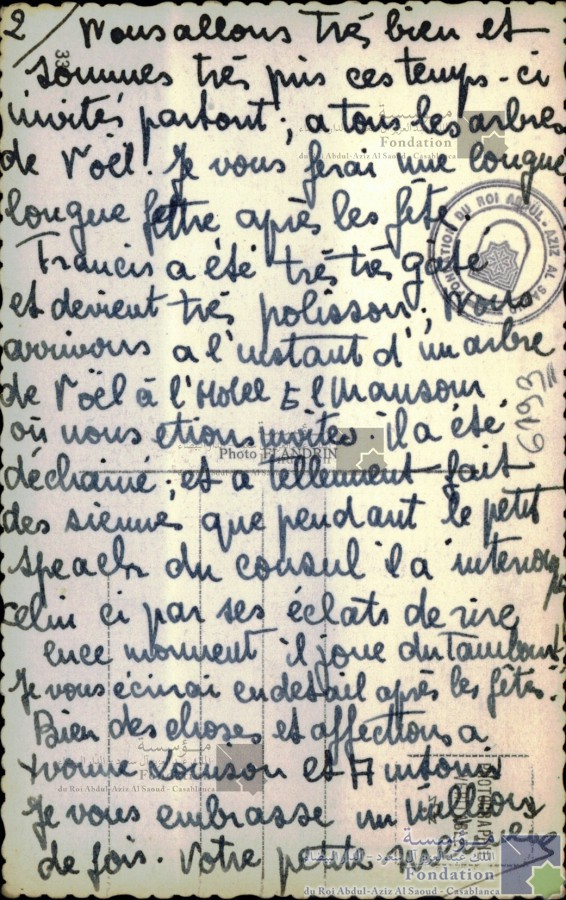 2/ Nous allons très bien et
sommes très pris ces temps-ci
invités partout; a tous les arbres
de Noël. Je vous ferai une longue
longue lettre après les fêtes.
Francis a été très très gâté
et devient très polisson; Nous
arrivons a l'instant d'un arbre
de Noël à l'Hotel El Mansour
où nous etions invités. il a été
déchainé; et a tellement fait
des siennes que pendant le petit
speach du consul il a interrompu
celui ci par ses éclats de rire
ence moment il joue du Tambour.
Je vous écrirai en detail après les fêtes.
Bien des choses et affections a
Yvonne Louison et Antonin
Je vous embrasse un Millions
de fois. Votre petite
6193
Photo FLANDRIN
FONDATION DU ROI ABDUL-AZIZ AL SAOUD
مؤسسة
الملك عبد العزيز آل سعود - الدار البيضاء
Fondation
du Roi Abdul-Aziz Al Saoud - Casablanca